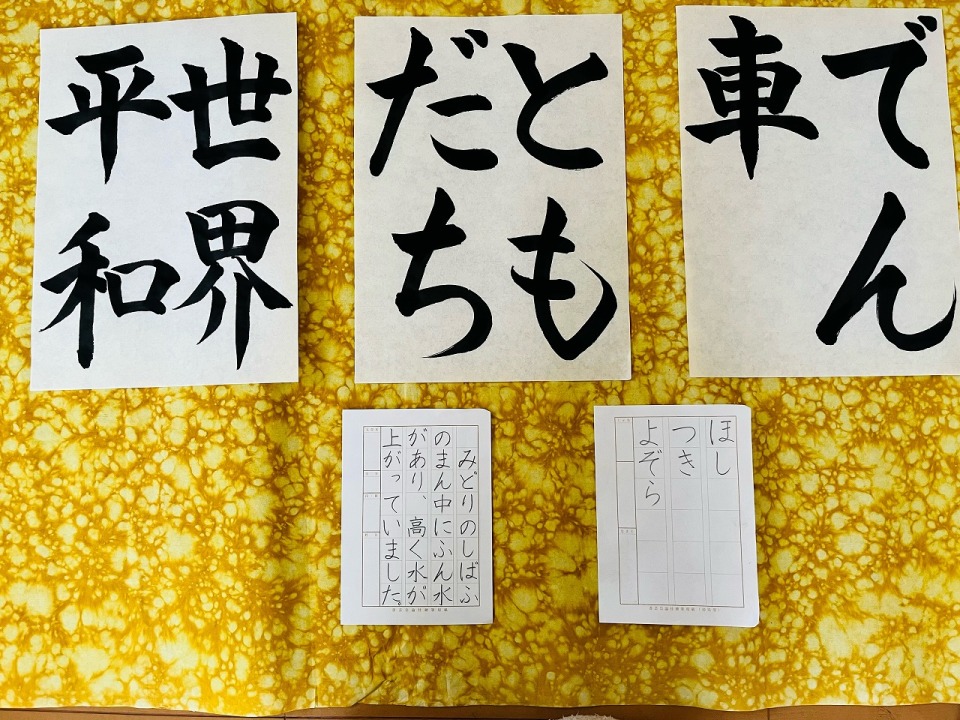 でん
車
とも
だち
世界
平和
ほし
つき
よぞら
みどりのしばふ
のまん中にふん水
があり、高く水が
上がっていました。